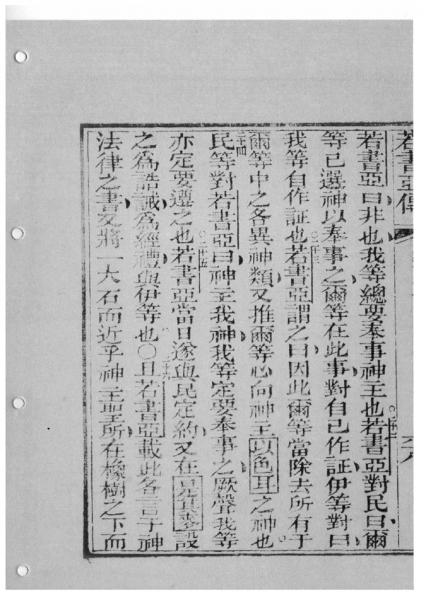 若書亞傳
若書亞曰非也我等總要奉事神主也若書亞對民曰爾
等已選神以奉事之爾等在此事對自己作証伊等對曰
我等自作証也若書亞謂之曰因此爾等當除去所有于
爾等中之各異神類又推爾等心向神主以色耳之神也
民等對若書亞曰神主我神我等定要奉事之厥聲我等
亦定要遵之也若書亞當日遂與民定約又在
之為誥誡為經禮與伊等也○且若書亞載此各言于神
法律之書又將一大石而近乎神主聖所在橡樹之下而